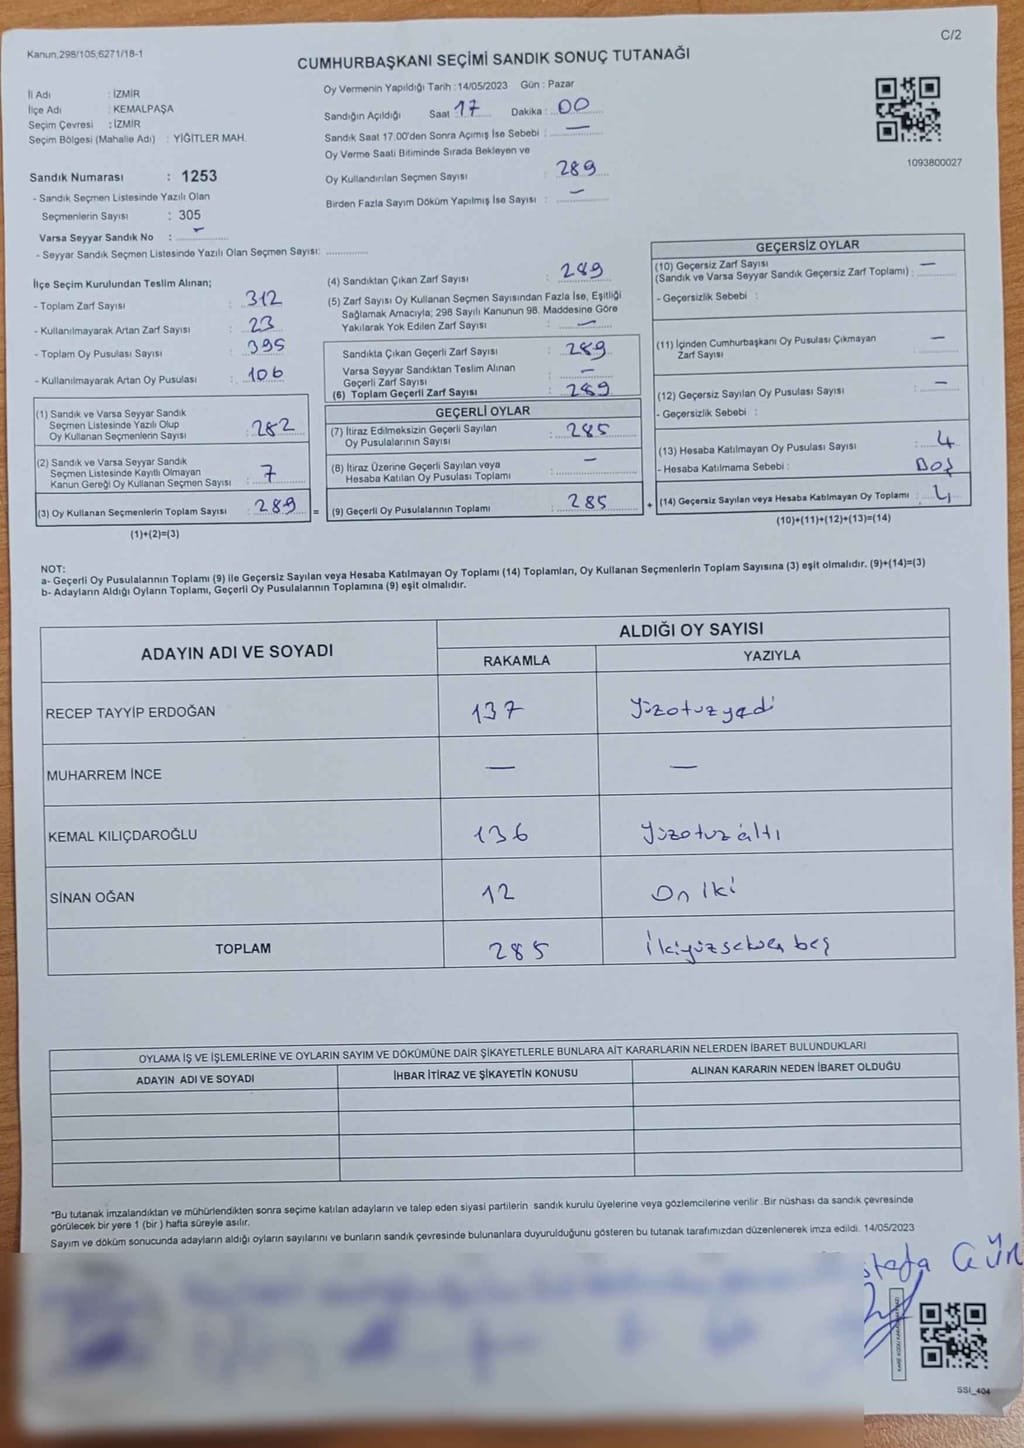 Kanun,298/105,6271/18-1
C/2
CUMHURBAŞKANI SEÇİMİ SANDIK SONUÇ TUTANAĞI
İl Adı : İZMİR
İlçe Adı : KEMALPAŞA
Seçim Çevresi : İZMİR
Seçim Bölgesi (Mahalle Adı) : YİĞİTLER MAH.
Sandık Numarası : 1253
- Sandık Seçmen Listesinde Yazılı Olan
Seçmenlerin Sayısı : 305
Varsa Seyyar Sandık No : -
- Seyyar Sandık Seçmen Listesinde Yazılı Olan Seçmen Sayısı: ............
Oy Vermenin Yapıldığı Tarih :14/05/2023 Gün : Pazar
Sandığın Açıldığı Saat 17 Dakika : 00
Sandık Saat 17.00'den Sonra Açımış İse Sebebi : —
Oy Verme Saati Bitiminde Sırada Bekleyen ve
Oy Kullandırılan Seçmen Sayısı 289
Birden Fazla Sayım Döküm Yapılmış İse Sayısı : —
1093800027
İlçe Seçim Kurulundan Teslim Alınan;
- Toplam Zarf Sayısı : 312
- Kullanılmayarak Artan Zarf Sayısı : 23
- Toplam Oy Pusulası Sayısı : 395
- Kullanılmayarak Artan Oy Pusulası : 106
(1) Sandık ve Varsa Seyyar Sandık
Seçmen Listesinde Yazılı Olup
Oy Kullanan Seçmenlerin Sayısı : 282
(2) Sandık ve Varsa Seyyar Sandık
Seçmen Listesinde Kayıtlı Olmayan
Kanun Gereği Oy Kullanan Seçmen Sayısı : 7
(3) Oy Kullanan Seçmenlerin Toplam Sayısı : 289
(1)+(2)=(3)
=
(4) Sandıktan Çıkan Zarf Sayısı : 289
(5) Zarf Sayısı Oy Kullanan Seçmen Sayısından Fazla İse, Eşitliği
Sağlamak Amacıyla; 298 Sayılı Kanunun 98. Maddesine Göre
Yakılarak Yok Edilen Zarf Sayısı : —
Sandıkta Çıkan Geçerli Zarf Sayısı : 289
Varsa Seyyar Sandıktan Teslim Alınan
Geçerli Zarf Sayısı : —
(6) Toplam Geçerli Zarf Sayısı : 289
GEÇERLİ OYLAR
(7) İtiraz Edilmeksizin Geçerli Sayılan
Oy Pusulalarının Sayısı : 285
(8) İtiraz Üzerine Geçerli Sayılan veya
Hesaba Katılan Oy Pusulası Toplamı : —
(9) Geçerli Oy Pusulalarının Toplamı : 285
+
GEÇERSİZ OYLAR
(10) Geçersiz Zarf Sayısı —
(Sandık ve Varsa Seyyar Sandık Geçersiz Zarf Toplamı) :
- Geçersizlik Sebebi :
(11) İçinden Cumhurbaşkanı Oy Pusulası Çıkmayan —
Zarf Sayısı
(12) Geçersiz Sayılan Oy Pusulası Sayısı : —
- Geçersizlik Sebebi :
(13) Hesaba Katılmayan Oy Pusulası Sayısı : 4
- Hesaba Katılmama Sebebi : Boş
(14) Geçersiz Sayılan veya Hesaba Katılmayan Oy Toplamı : 4
(10)+(11)+(12)+(13)=(14)
NOT:
a- Geçerli Oy Pusulalarının Toplamı (9) ile Geçersiz Sayılan veya Hesaba Katılmayan Oy Toplamı (14) Toplamları, Oy Kullanan Seçmenlerin Toplam Sayısına (3) eşit olmalıdır. (9)+(14)=(3)
b- Adayların Aldığı Oyların Toplamı, Geçerli Oy Pusulalarının Toplamına (9) eşit olmalıdır.
ADAYIN ADI VE SOYADI
ALDIĞI OY SAYISI
RAKAMLA YAZIYLA
RECEP TAYYİP ERDOĞAN 137 Yüzotuzyedi
MUHARREM İNCE — —
KEMAL KILIÇDAROĞLU 136 Yüzotuzaltı
SİNAN OĞAN 12 On iki
TOPLAM 285 İkiyüzseksen beş
OYLAMA İŞ VE İŞLEMLERİNE VE OYLARIN SAYIM VE DÖKÜMÜNE DAİR ŞİKAYETLERLE BUNLARA AİT KARARLARIN NELERDEN İBARET BULUNDUKLARI
ADAYIN ADI VE SOYADI İHBAR İTİRAZ VE ŞİKAYETİN KONUSU ALINAN KARARIN NEDEN İBARET OLDUĞU
*Bu tutanak imzalandıktan ve mühürlendikten sonra seçime katılan adayların ve talep eden siyasi partilerin sandık kurulu üyelerine veya gözlemcilerine verilir .Bir nüshası da sandık çevresinde
görülecek bir yere 1 (bir ) hafta süreyle asılır.
Sayım ve döküm sonucunda adayların aldığı oyların sayılarını ve bunların sandık çevresinde bulunanlara duyurulduğunu gösteren bu tutanak tarafımızdan düzenlenerek imza edildi. 14/05/2023
SSI_404